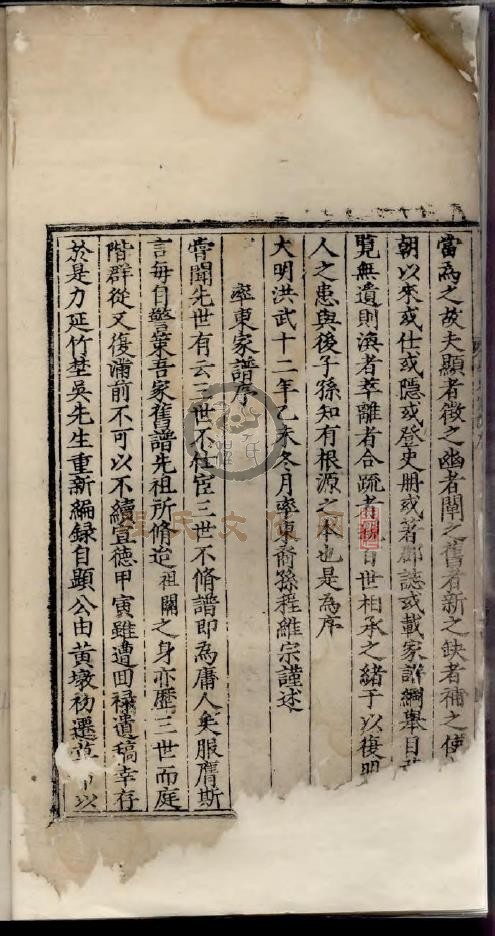 當為之故夫顯者徵之幽者闡之舊者新之缺者補之使
朝以來或仕或隱或登史冊或著郡誌或載家詳綱舉目
覽無遺則渙者萃離者合疏者親百世相承之緒于以復明
人之患與後子孫知有根源之本也是為序
大明洪武十二年乙未冬月率東裔孫程維宗謹述
率東家譜序
嘗聞先世有云三世不仕宦三世不脩譜即為庸人矣服膺斯
言每自警策吾家舊譜先祖所脩迨祖闗之身亦歷三世而庭
階群從又復滿前不可以不續宣德甲寅雖遭回祿遺稿幸存
於是力延竹埜吳先生重新編録自顯公由黃墩初遷以